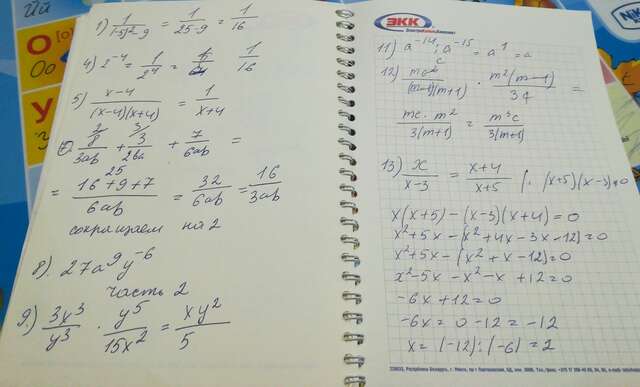 1) 1/((-5)²-9) = 1/(25-9) = 1/16
4) 2⁻⁴ = 1/2⁴ = 1/16
5) (x-4)/((x-4)(x+4)) = 1/(x+4)
8/3ab + 3/2ba + 7/6ab =
= (16+9+7)/6ab = 32/6ab = 16/3ab
сокращаем на 2
8). 27a⁹y⁻⁶
часть 2
9.) 3x³/y³ · y⁵/15x² = xy²/5
ЭКК
11) a⁻¹⁴ : a⁻¹⁵ = a¹ = a
12) mc/((m-1)(m+1)) · m²(m-1)/3 =
mc·m²/3(m+1) = m³c/3(m+1)
13) x/(x-3) = (x+4)/(x+5) | · (x+5)(x-3)≠0
x(x+5) - (x-3)(x+4) = 0
x²+5x - (x²+4x-3x-12) = 0
x²+5x - (x²+x-12) = 0
x²-5x - x²-x +12 = 0
-6x+12 = 0
-6x = 0-12 = -12
x = (-12):(-6) = 2